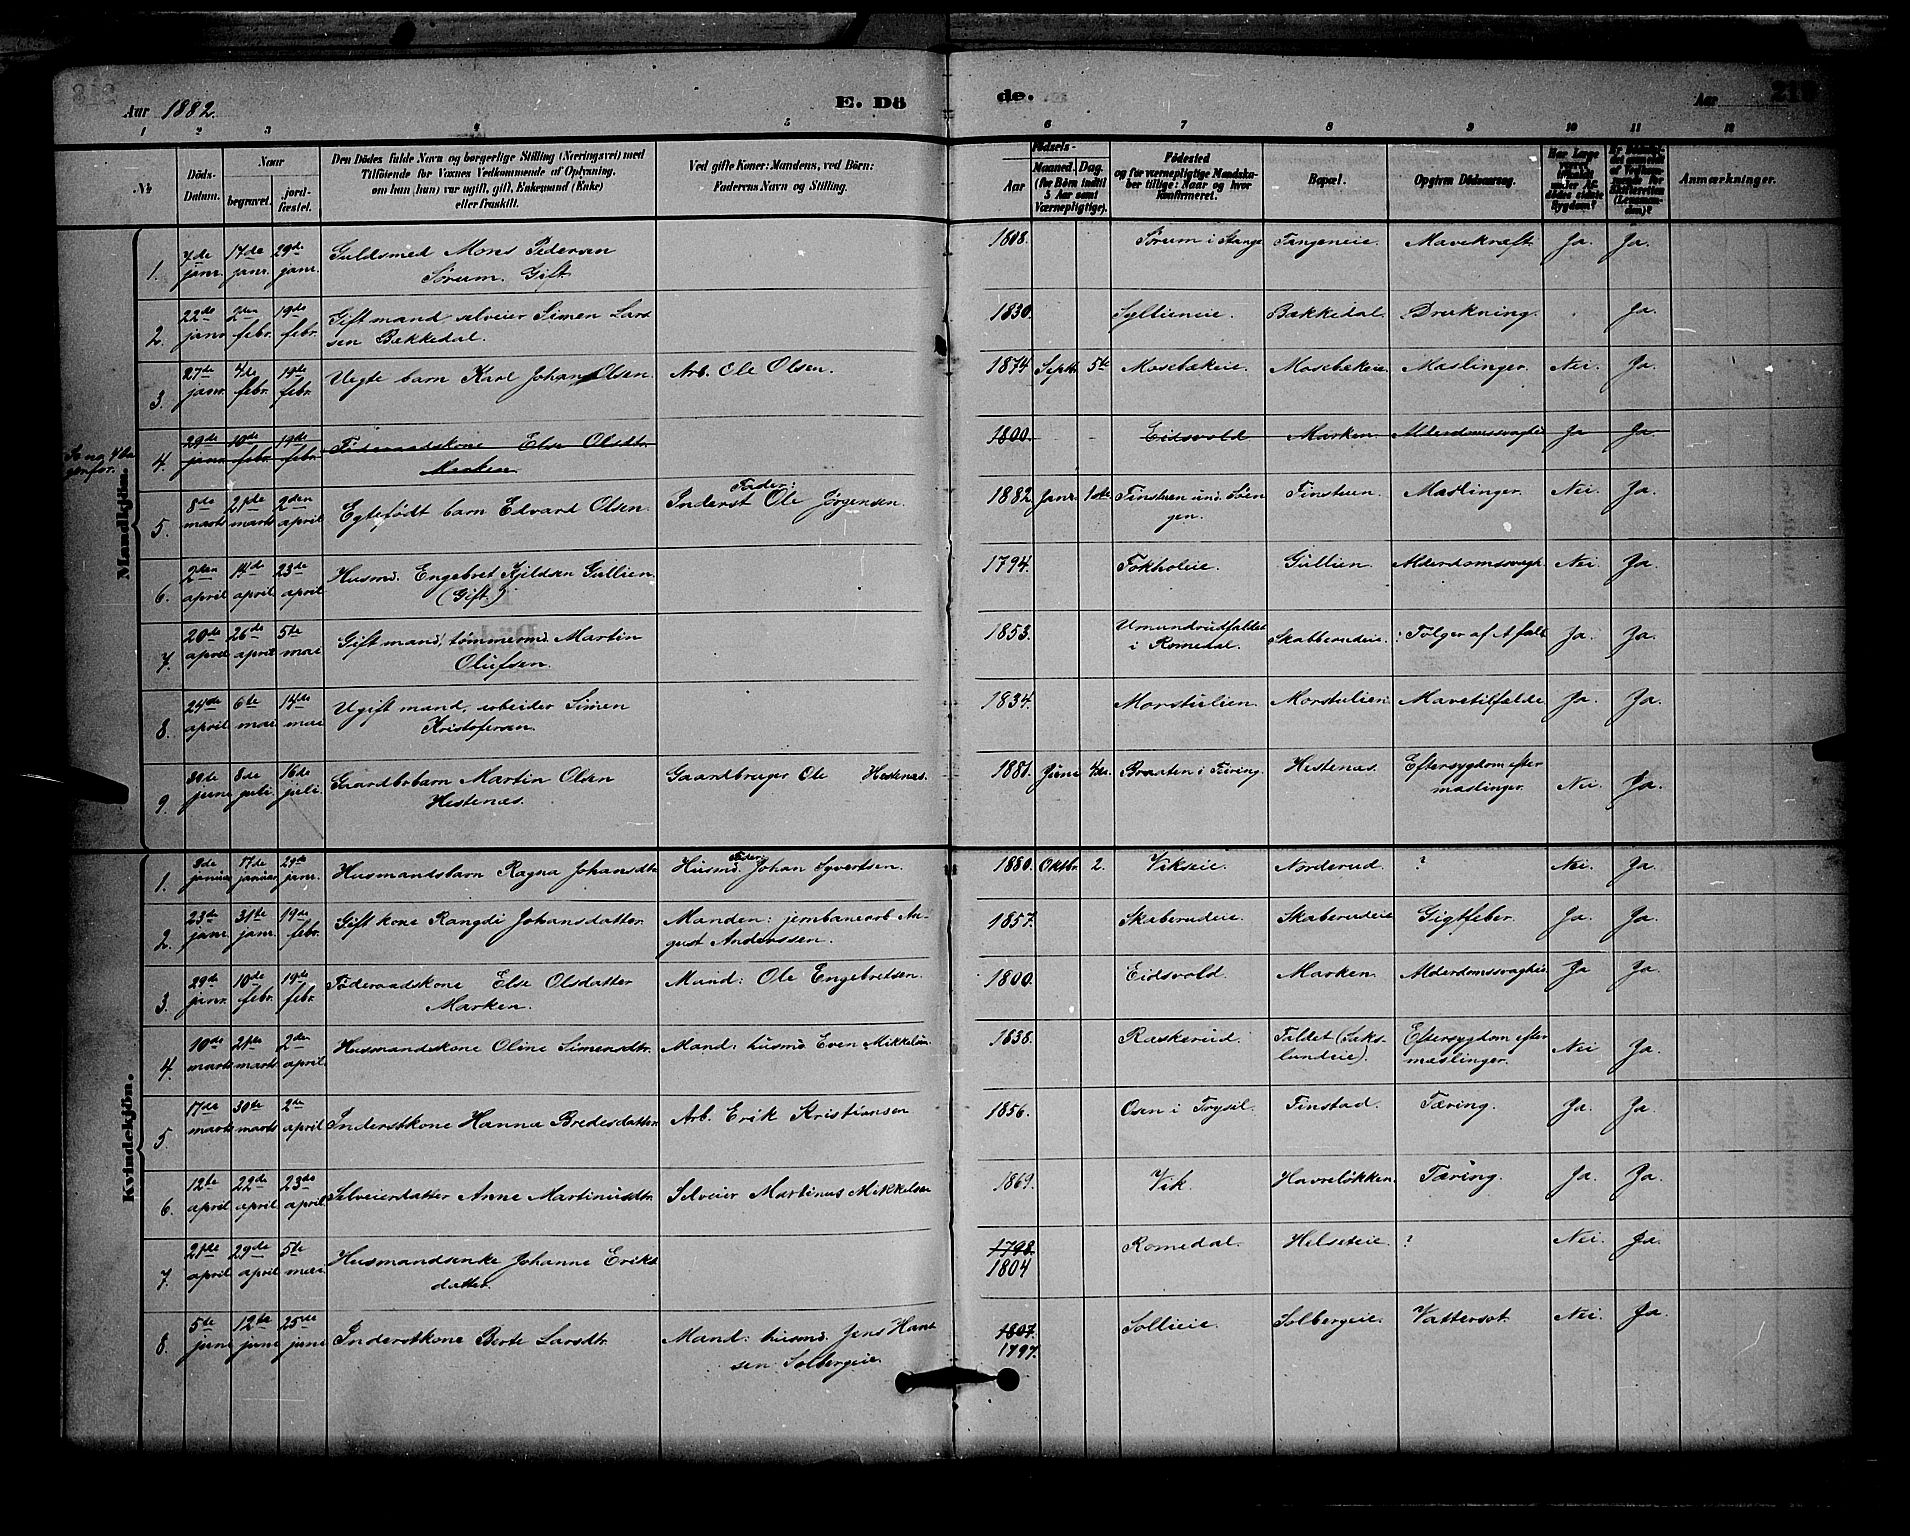 Aar 1882. E. Döde. Aar
1 2 3 4 5 6 7 8 9 10 11 12
№ Döds-Datum. Naar begravet. jord-fæstet. Den Dödes fulde Navn og borgerlige Stilling (Næringsvei) med Tilföiende for Voxnes Vedkommende af Oplysning, om han (hun) var ugift, gift, Enkemand (Enke) eller fraskilt. Ved gifte Koner: Mandens, ved Börn: Faderens Navn og Stilling. Födsels- Aar Maaned. Dag. (for Börn indtil 5 Aar samt Værnepligtige). Födested og for værnepligtige Mandskaber tillige: Naar og hvor konfirmeret. Bopæl. Opgiven Dödsaarsag. Anmærkninger.
Mandkjön.
1. 7de janr. 17de janr. 29de janr. Guldsmed Mons Pedersen Sörum. Gift 1808. Sörum i Stange Tangeneie. Mavekræft. Ja. Ja.
2. 22de janr. 2den febr. 19de febr. Gift mand, selveier Simen Larssen Bækkedal. 1830. Syllieneie. Bækkedal. Drukning. Ja.
3. 27de janr. 4de febr. 19de febr. Uegte barn Karl Johan Olsen. Arb. Ole Olsen. 1874 Septr. 5te Mosebækeie. Mosebækeie. Mæslinger. Nei. Ja.
4. 29de janr. 10de febr. 19de febr. Föderaadskone Else Olsdtr. Marken. 1800. Eidsvold Marken. Alderdomssvaghed Ja Ja.
5. 8de marts 21de marts 2den april Egtefödt barn Edvard Olsen. Fader: Inderst Ole Jörgensen. 1882 Janr. 1ste Finstuen und. Söengen. Finstuen. Mæslinger. Nei. Ja.
6. 2den april 14de april 23de april Husmd. Engebret Kjeldsen Gullien. (Gift.) 1794. Fokholeie. Gullien. Alderdomssvagh. Nei. Ja.
7. 20de april 26de april 5te mai Gift mand, tömmermd. Martin Olufsen. 1853. i Romedal. Skabberudeie. Fölger af Afald Ja. Ja.
8. 24de april 6te mai 14de mai Ugift mand, arbeider Simen Kristofersen. 1834. Morstulien. Morstulien. Mavetilfælde. Ja. Ja.
9. 30de juni 8de juli 16de juli Gaardbr.barn Martin Olsen Hestenæs. Gaardbruger Ole Hestenæs. 1881. Juni 4de. Braaten i Hestenæs. Eftersygdom efter mæslinger. Nei. Ja.
Kvindekjön.
1. januar 17de januar 29de janr. Husmandsbarn Ragna Johansdtr. Fader: Husmd. Johan Syvertsen. 1880. Oktbr. 2. Vikseie. Norderud. ? Nei. Ja.
2. 23de janr. 31te janr. 19de febr. Gift kone Rangdi Johansdatter. Manden: jernbanearb. August Anderssen. 1857. Skaberudeie. Skaberudeie Gigtfeber. Ja. Ja.
3. 29de janr. 10de febr. 19de febr. Föderaadskone Else Olsdatter Marken. Mand: Ole Engebretsen. 1800. Eidsvold. Marken. Alderdomssvaghed. Ja Ja.
4. 10de marts 21de marts 2den april Husmandskone Oline Simensdtr. Mand: husmd. Even Mikkelsen. 1838. Ræskerud. Faldet (Sakslundeie). Eftersygdom efter mæslinger. Nei Ja.
5. 17de marts 30te marts 2de april Inderstkone Hanna Bredesdatter. Arb. Erik Kristiansen 1856. Osen i Trysil. Finstad. Tæring. Ja. Ja.
6. 12te april 22de april 23de april Selveierdatter Anne Martinusdtr. Selveier Martinus Mikkelsen 1869. Vik. Havrelökken. Tæring. Ja. Ja.
7. 21de april 29de april 5te mai Husmandsenke Johanne Eriksdatter. 1798. 1804 Romedal. Helseteie. ? Nei. Ja.
8. 5te juni 12te juni 25de juni Inderstkone Berte Larsdtr. Mand: husmd. Jens Hansen Solbergeie. 1807. 1797. Sollieie. Solbergeie. Vattersot. Nei. Ja.